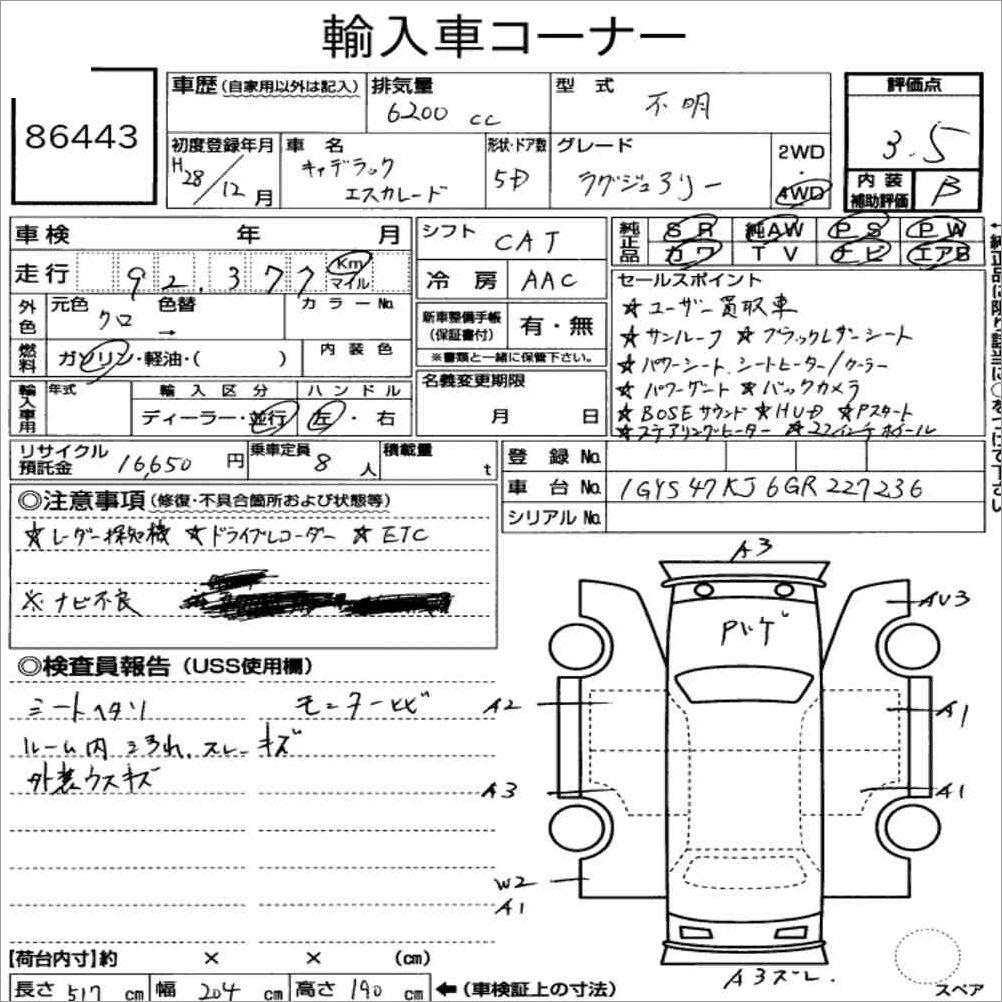 輸入車コーナー
86443
車歴 (自家用以外は記入) 排気量 6200 cc 型式 不明 評価点 3.5
初度登録年月 H28/12月 車名 キャデラック エスカレード 形状・ドア数 5D グレード ラグジュアリー 2WD・4WD 内装補助評価 B
車検 年 月 シフト CAT 純正品 SR 純AW PS PW
カワ TV ナビ エアB
走行 92,377 Km マイル 冷房 AAC
セールスポイント
外色 元色 クロ 色替 → カラーNo.
新車整備手帳 (保証書付) 有・無
※書類と一緒に保管下さい。
☆ユーザー買取車
☆サンルーフ ☆ブラックレザーシート
☆パワーシート、シートヒーター/クーラー
☆パワーゲート ☆バックカメラ
☆BOSEサウンド ☆HUD ☆Pスタート
☆ステアリングヒーター ☆22インチホイール
燃料 ガソリン・軽油・( ) 内装色
名義変更期限 月 日
輸入車用 年式 輸入区分 ディーラー・並行 ハンドル 左・右
リサイクル預託金 16,650円 乗車定員 8人 積載量 t
登録No.
車台No. 1GYS47KJ6GR227236
シリアルNo.
◎注意事項 (修復・不具合箇所および状態等)
☆レーダー探知機 ☆ドライブレコーダー ☆ETC
※ナビ不良
◎検査員報告 (USS使用欄)
シートヘタリ モニターヒビ
ルーム内ヨゴれ、スレ、キズ
外装ウスキズ
A3
Pバゲ
AU3
A2
A1
A3
A1
W2
A1
A3ズレ.
スペア
【荷台内寸】約 × × (cm)
長さ 517 cm 幅 204 cm 高さ 190 cm ←(車検証上の寸法)